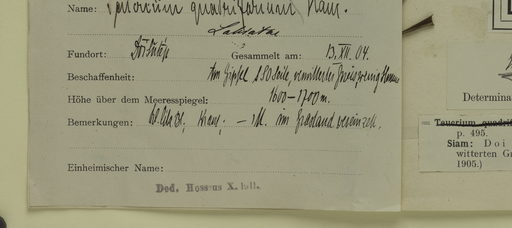 Name: Teucrium quadrifarium Ham.
Labiatae
Fundort: Doi Sutäp Gesammelt am: 13. XII. 04.
Beschaffenheit: Am Gipfel S.SO Seite, verwitterter
Höhe über dem Meeresspiegel: 1600–1700 m.
Bemerkungen: – M. im Grasland vereinzelt.
Einheimischer Name:
Ded. Hosseus X.
Determina
Teucrium quadrif
p. 495.
Siam: Doi
witterten Gr
1905.)